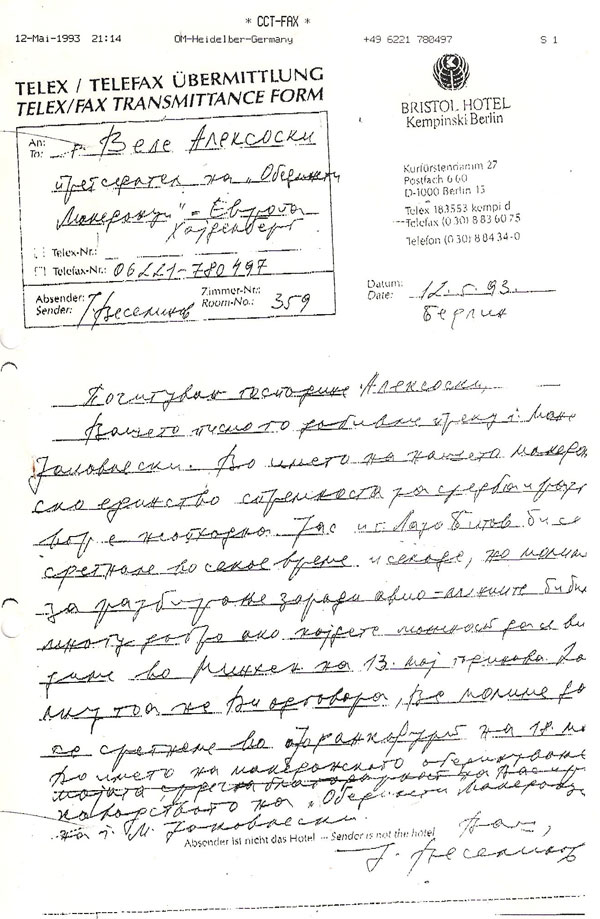 * CCT-FAX *
12-Mai-1993 21:14 OM-Heidelber-Germany +49 6221 780497 S 1
TELEX / TELEFAX ÜBERMITTLUNG
TELEX/FAX TRANSMITTANCE FORM
BRISTOL HOTEL
Kempinski Berlin
Kurfürstendamm 27
Postfach 6 60
D-1000 Berlin 15
Telex 183553 kempi d
Telefax (0 30) 8 83 60 75
Telefon (0 30) 8 84 34-0
An:
To: г. Веле Алексоски
претседател на „Обединети
Македонци" - Европа
Хајделберг
Telex-Nr.:
Telefax-Nr.: 06221-780497
Absender:
Sender: Ј. Веселинов
Zimmer-Nr.:
Room-No.: 359
Datum:
Date: 12.5.93.
Берлин
Почитуван господине Алексоски,
Вашето писмо добивме преку г. Мане
Јаковлески. Во името на нашето македон
ско единство спремноста за средба и разго
вор е неопходна. Јас и г. Лазо Китов би се
сретнале во секое време и секаде, но молиме
за разбирање заради авио-линиите би би
многу добро ако најдете можност да се ви
диме во Минхен на 13. мај
лку тоа не Ви одговара, Ве молиме да
се сретнеме во Франкфурт на 18. ма
Во името на македонското обединување
благодарност на
на „Обединети Македонци
на г. М. Јаковлески.
Absender ist nicht das Hotel – Sender is not the hotel
Ваш,
Ј. Веселинов